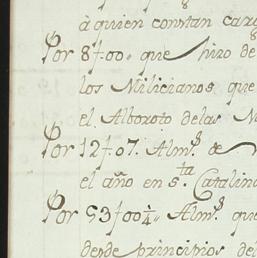 à quien constan carg
Por 8f.00. que hizo de
los Milicianos que
el Alboroto delas N
Por 12f.07. Alms de
el año en Sta Catalina
Por 53f.00¼. Alms. que
desde principios del